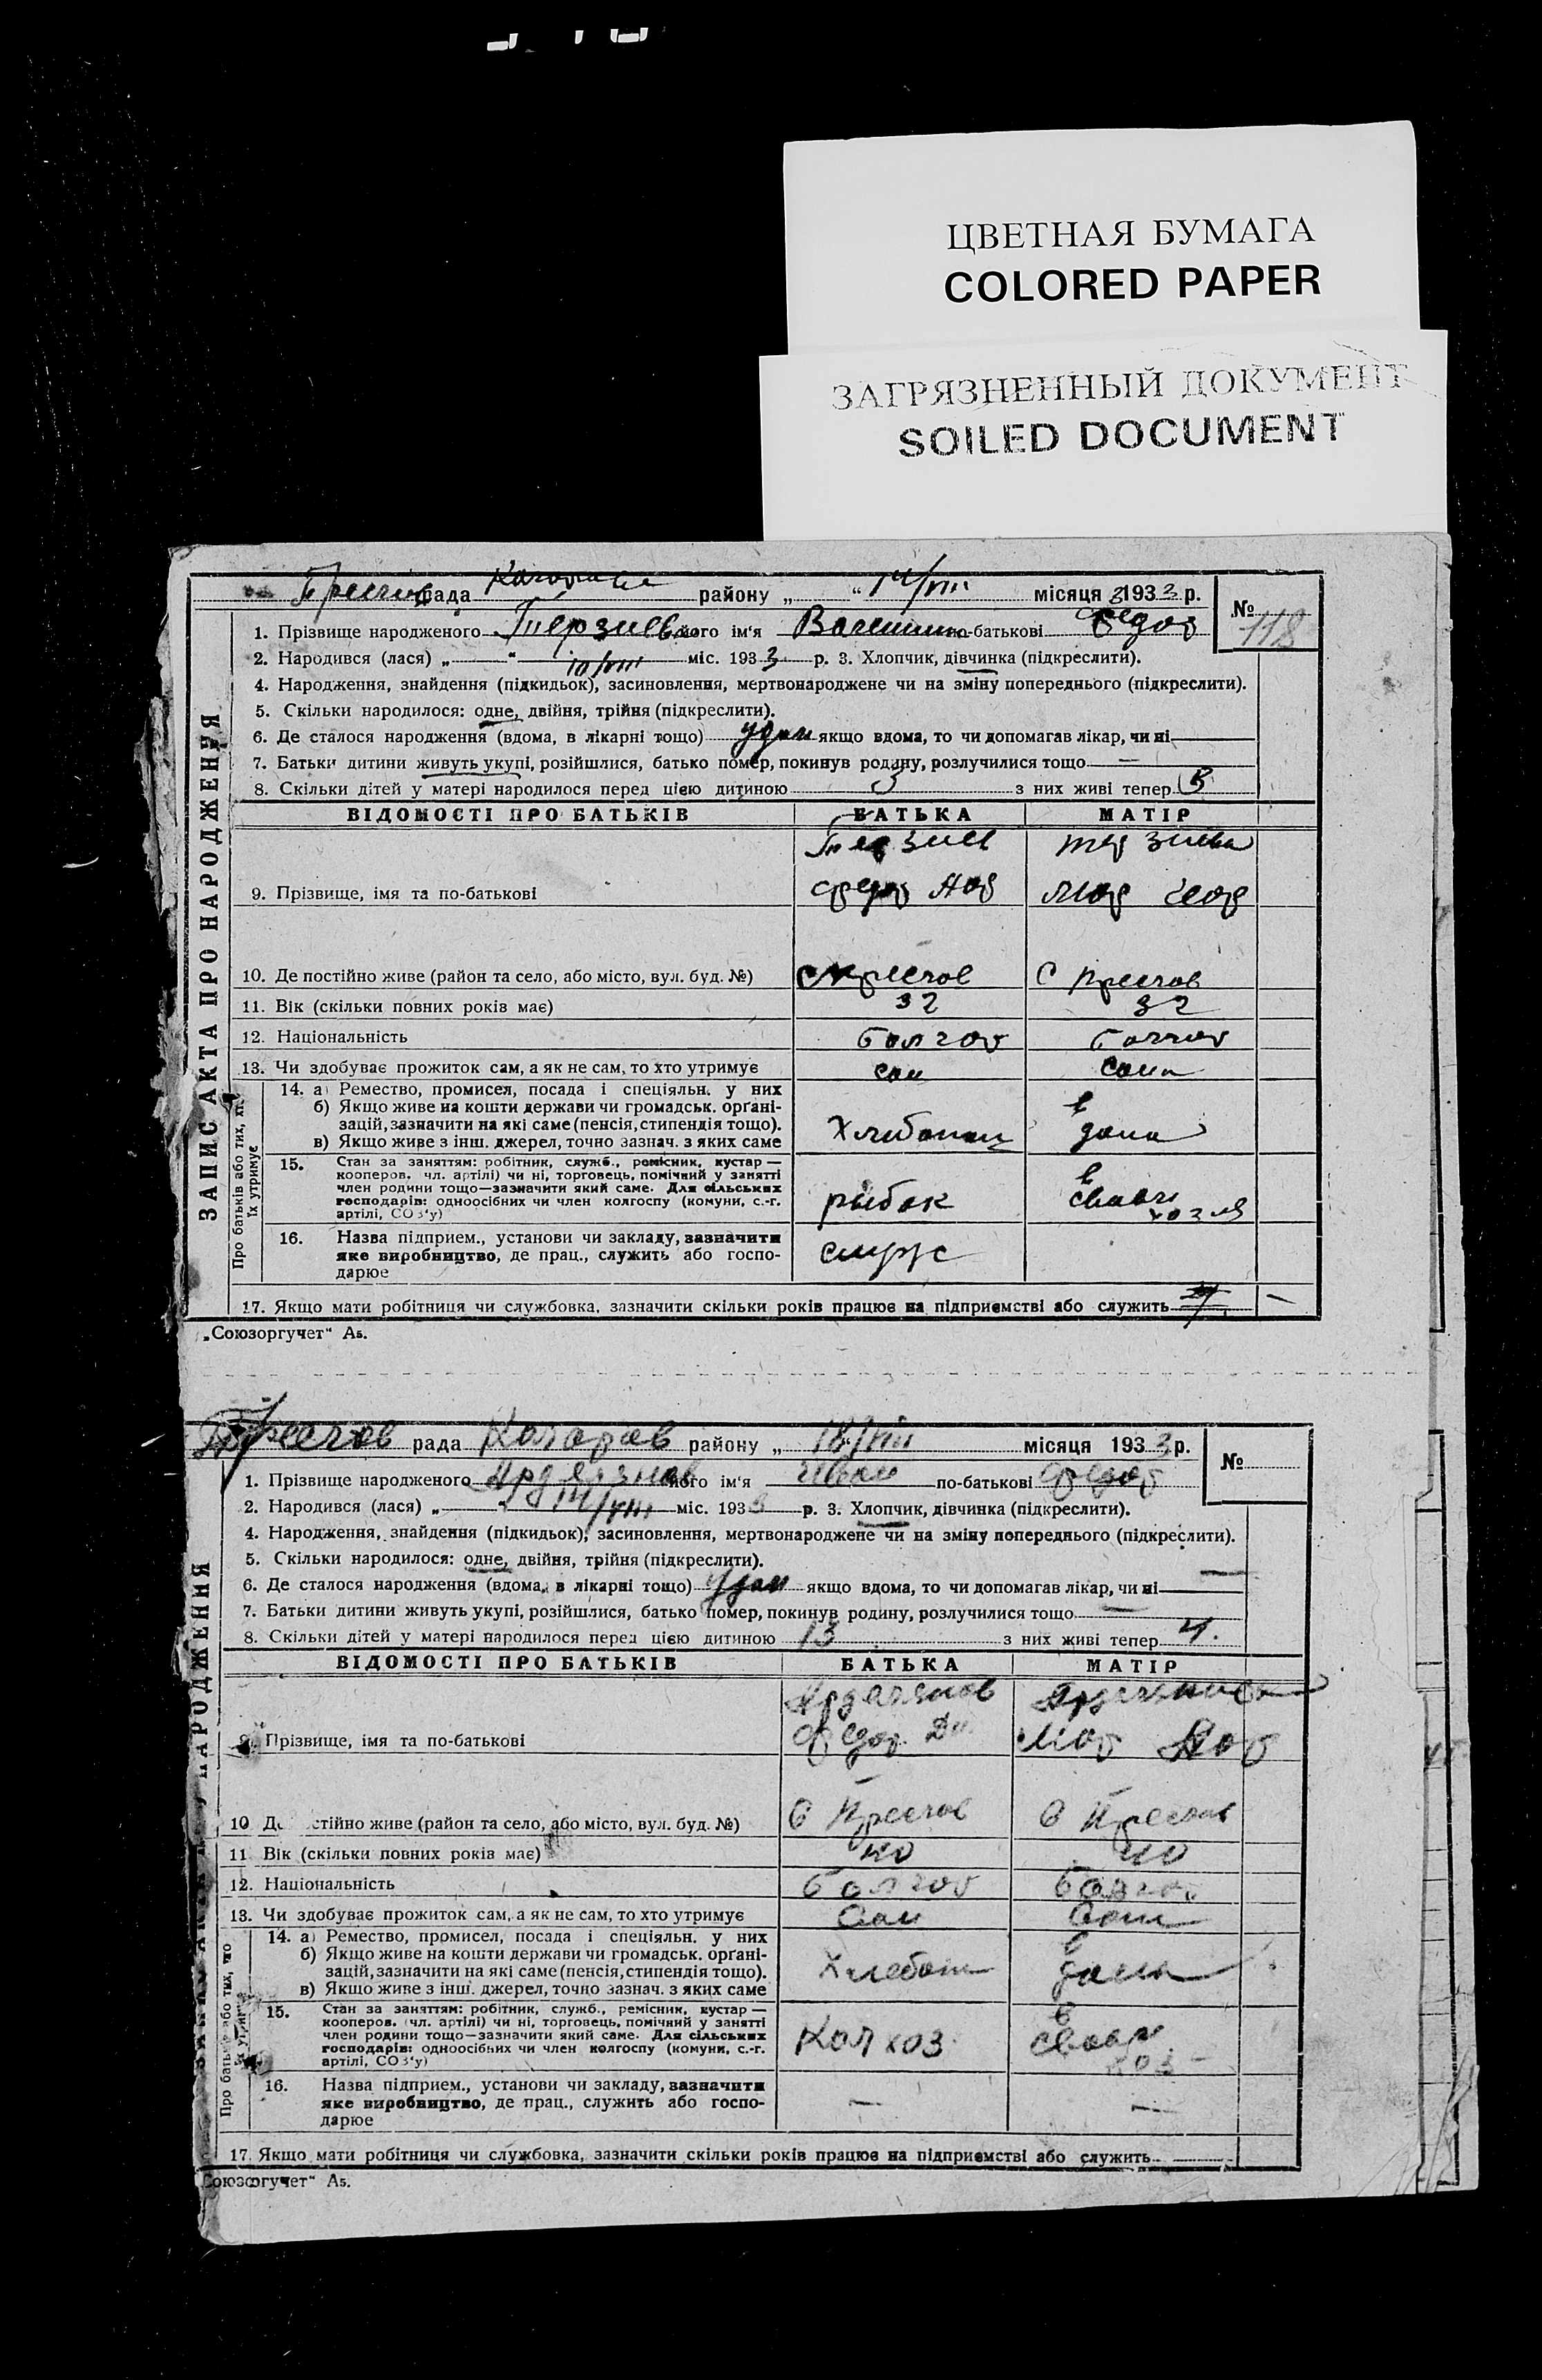 ЦВЕТНАЯ БУМАГА
COLORED PAPER
ЗАГРЯЗНЕННЫЙ ДОКУМЕНТ
SOILED DOCUMENT
рада району „ “ 14/VIII місяця 1933 р.
№ 118
1. Прізвище народженого Терзиева його ім'я по-батькові Федор
2. Народився (лася) „ “ 10/VIII міс. 1933 р. 3. Хлопчик, дівчинка (підкреслити).
4. Народження, знайдення (підкидьок), засиновлення, мертвонароджене чи на зміну попереднього (підкреслити).
5. Скільки народилося: одне, двійня, трійня (підкреслити).
6. Де сталося народження (вдома, в лікарні тощо) удом якщо вдома, то чи допомагав лікар, чи ні —
7. Батьки дитини живуть укупі, розійшлися, батько помер, покинув родину, розлучилися тощо —
8. Скільки дітей у матері народилося перед цією дитиною 3 з них живі тепер
ЗАПИС АКТА ПРО НАРОДЖЕННЯ
ВІДОМОСТІ ПРО БАТЬКІВ БАТЬКА МАТІР
Терзиев Терзиева
9. Прізвище, імя та по-батькові Федор
10. Де постійно живе (район та село, або місто, вул. буд. №) с Преслов с Преслов
11. Вік (скільки повних років має) 32 32
12. Національність болгар болгар
13. Чи здобуває прожиток сам, а як не сам, то хто утримує сам сама
Про батьків або тих, хто їх утримує
14. а) Ремество, промисел, посада і спеціяльн. у них
б) Якщо живе на кошти держави чи громадськ. органі-
зацій, зазначити на які саме (пенсія, стипендія тощо).
в) Якщо живе з інш. джерел, точно зазнач. з яких саме в дома
15. Стан за заняттям: робітник, служб., ремісник, кустар —
кооперов. чл. артілі) чи ні, торговець, помічний у занятті
член родини тощо—зазначити який саме. Для сільських
господарів: одноосібних чи член колгоспу (комуни, с.-г.
артілі, СОЗ'у) рыбак в
16. Назва підприем., установи чи закладу, зазначити
яке виробництво, де прац., служить або госпо-
дарює
17. Якщо мати робітниця чи службовка, зазначити скільки років працює на підприємстві або служить —
„Союзоргучет“ А5.
Преслов рада району „ “ 18/VIII місяця 1933 р.
№
1. Прізвище народженого його ім'я Иван по-батькові Федор
2. Народився (лася) „ міс. 1933 р. 3. Хлопчик, дівчинка (підкреслити).
4. Народження, знайдення (підкидьок), засиновлення, мертвонароджене чи на зміну попереднього (підкреслити).
5. Скільки народилося: одне, двійня, трійня (підкреслити).
6. Де сталося народження (вдома, в лікарні тощо) удом якщо вдома, то чи допомагав лікар, чи ні —
7. Батьки дитини живуть укупі, розійшлися, батько помер, покинув родину, розлучилися тощо —
8. Скільки дітей у матері народилося перед цією дитиною 13 з них живі тепер 4.
НАРОДЖЕННЯ
ВІДОМОСТІ ПРО БАТЬКІВ БАТЬКА МАТІР
9. Прізвище, імя та по-батькові Федор
10 стійно живе (район та село, або місто, вул. буд. №) с Преслов с Преслов
11 Вік (скільки повних років має) 40 40
12. Національність Болгар Болгар
13. Чи здобуває прожиток сам, а як не сам, то хто утримує Сам Сама
14. а) Ремество, промисел, посада і спеціяльн. у них
б) Якщо живе на кошти держави чи громадськ. органі-
зацій, зазначити на які саме (пенсія, стипендія тощо).
в) Якщо живе з інш. джерел, точно зазнач. з яких саме в дома
15. Стан за заняттям: робітник, служб., ремісник, кустар —
кооперов. (чл. артілі) чи ні, торговець, помічний у занятті
член родини тощо—зазначити який саме. Для сільських
господарів: одноосібних чи член колгоспу (комуни, с.-г.
артілі, СОЗ'у) Колхоз в
16. Назва підприем., установи чи закладу, зазначити
яке виробництво, де прац., служить або госпо-
дарює — —
17. Якщо мати робітниця чи службовка, зазначити скільки років працює на підприємстві або служить
Союзоргучет“ А5.